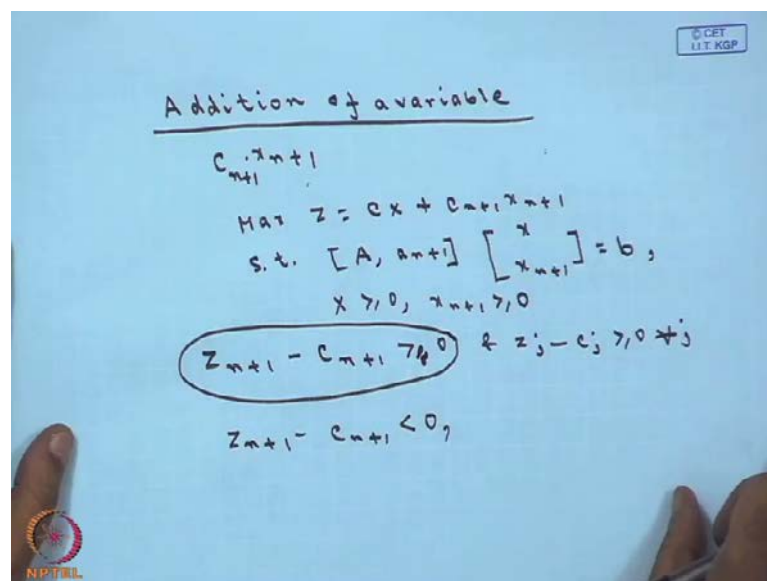 © CET
I.I.T. KGP
Addition of a variable
C_{n+1} \cdot x_{n+1}
Max z = cx + c_{n+1} x_{n+1}
s.t. [A, a_{n+1}] [x x_{n+1}] = b,
x ≥ 0, x_{n+1} ≥ 0
z_{n+1} - c_{n+1} ≥ 0 & z_j - c_j ≥ 0 ∀ j
z_{n+1} - c_{n+1} < 0,
NPTEL